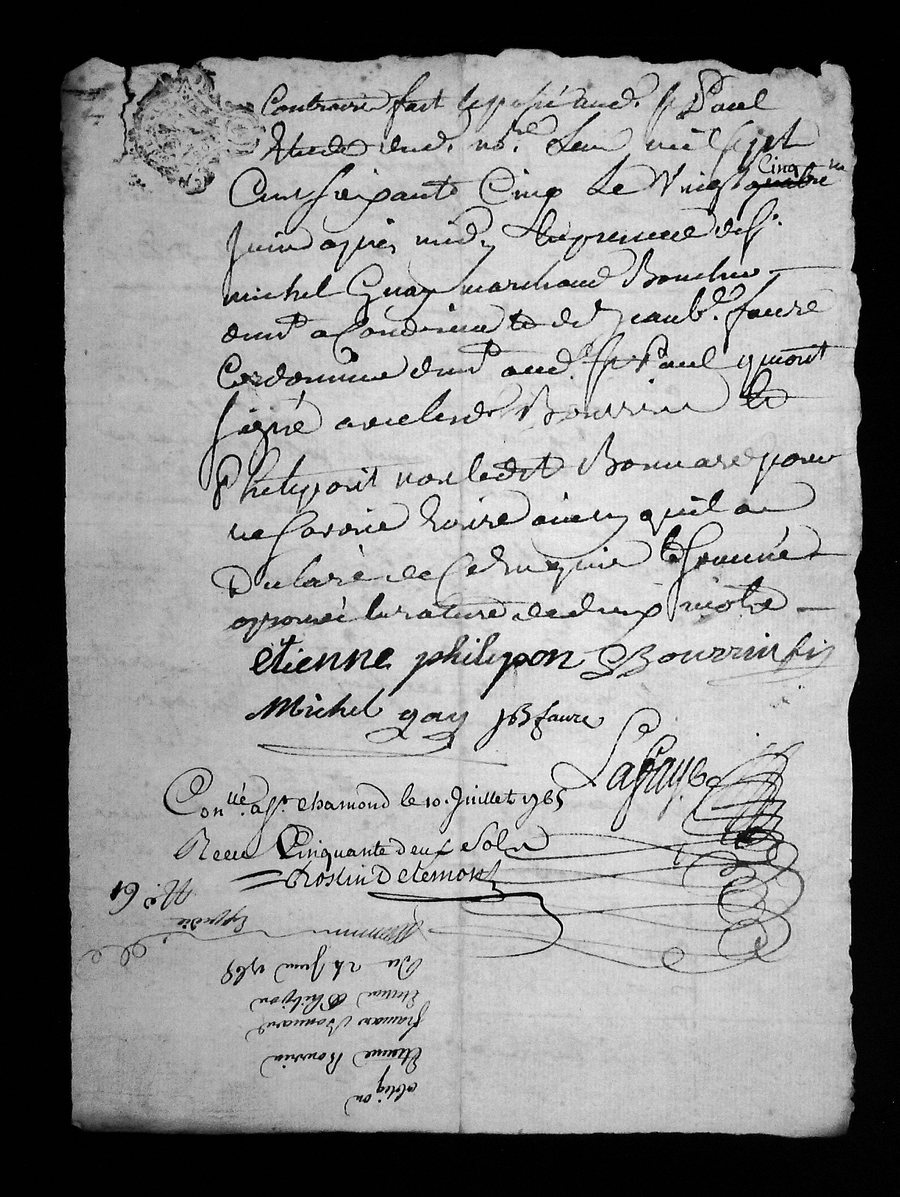 Contraire fait et passé aud. St Paul
Etude dud. no.re L'an mil sept
Cent soixante Cinq Le Vingt quatre Cinq
Juin apres midy En presence de Sr.
Michel Guay marchand Boucher
demt a Condrieu et de Jean B.te faure
Cordonnier demt aud. St Paul qui ont
signé avec lesd. Bourrin et
Philipon non ledit Bonnard pour
ne savoir Ecrire ainsy qu'il a
Declaré de ce Enquis et sommé
approuvé la rature de deux mots
etienne philipon EBourrin fis
Michel gay JB faure
Lafaye
Con.llé a St. chamond le 10. Juillet 1765
Receu Cinquante deux Sols
Roslin Detemont
No. 61
Expedié
Du 24 Juin 1765
Etienne Philipon
françois Bonnard
Etienne Bourrin
obligon